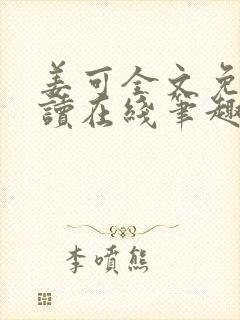 姜可全文免
讀在綫筆趣
李噴熊